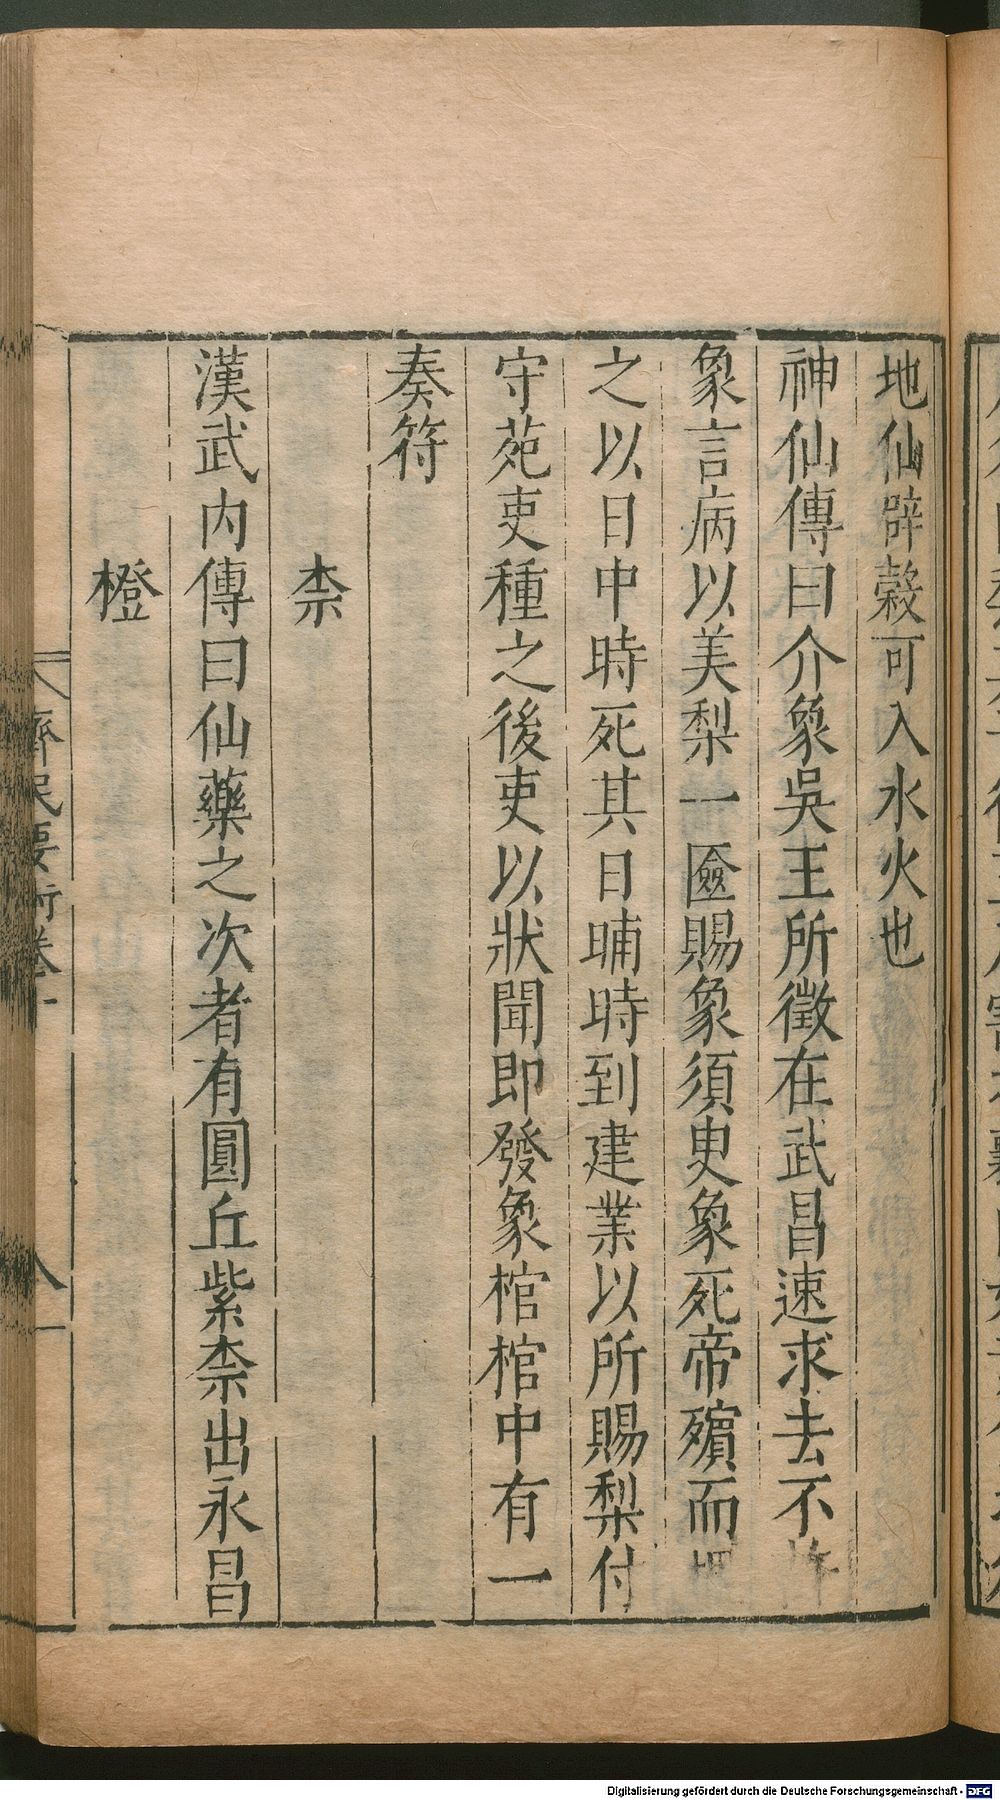 地仙辟穀可入水火也
神仙傳曰介象吳王所徵在武昌速求去不許
象言病以美梨一匳賜象須㬰象死帝殯而埋
之以日中時死其日晡時到建業以所賜梨付
守苑吏種之後吏以狀聞即發象棺棺中有一
奏符
柰
漢武內傳曰仙藥之次者有圓丘紫柰出永昌
橙
齊民要術卷十
八
Digitalisierung gefördert durch die Deutsche Forschungsgemeinschaft - DFG